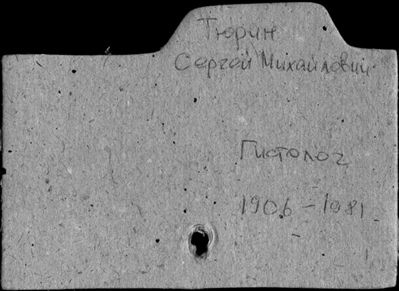 Тюрин
Сергей Михайлович
Гистолог
1906-1981